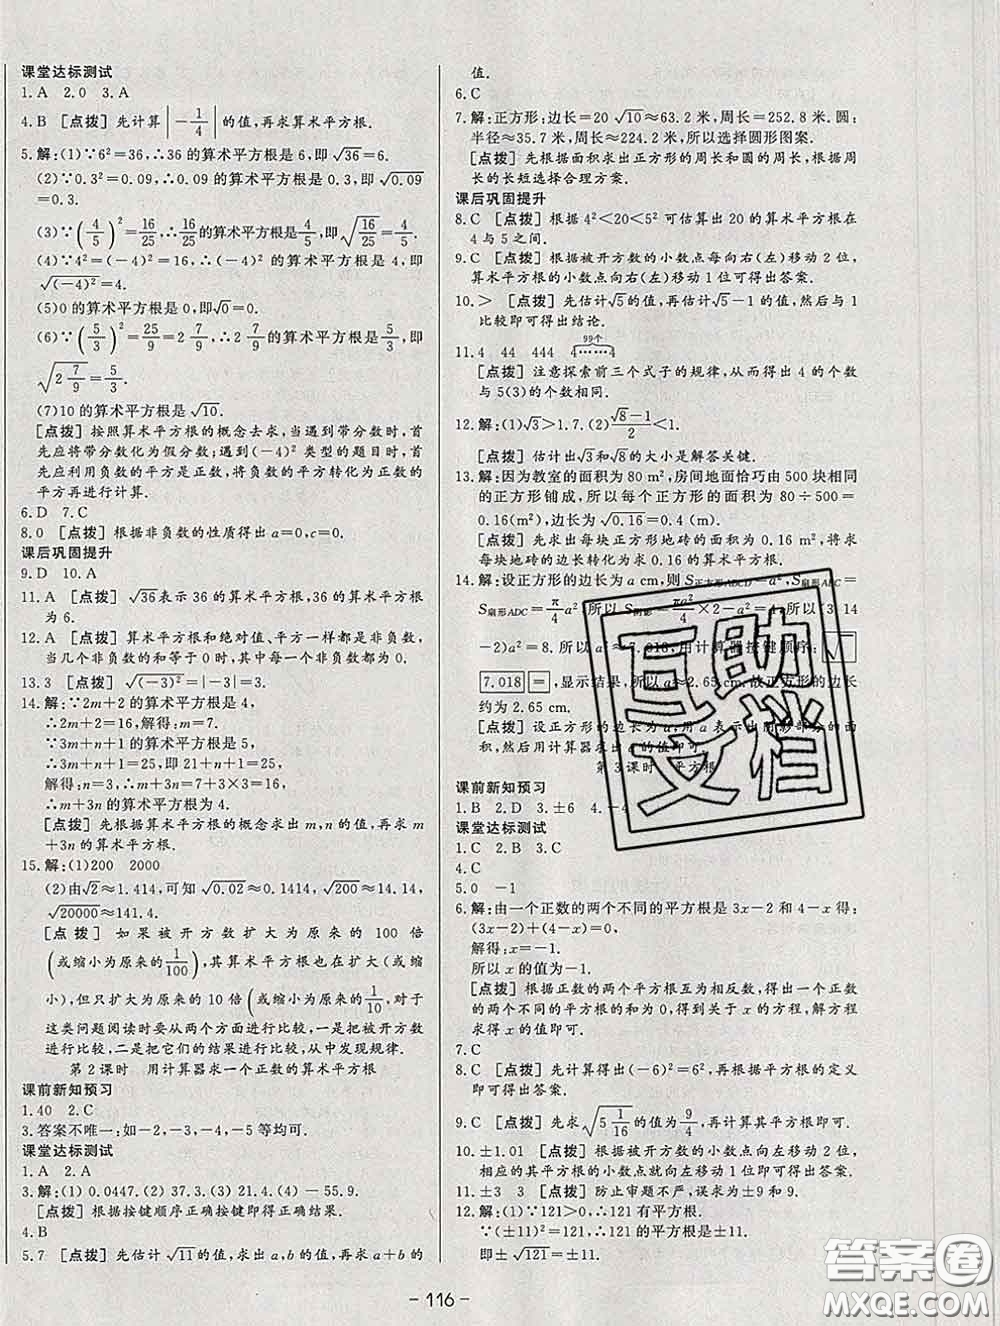 课堂达标测试
1.A 2.0 3.A
4.B [点拨]先计算|-1/4|的值,再求算术平方根.
5.解:(1)∵6²=36,∴36的算术平方根是6,即√36=6.
(2)∵0.3²=0.09,∴0.09的算术平方根是0.3,即√0.09
=0.3.
(3)∵(4/5)²=16/25,∴16/25的算术平方根是4/5,即√(16/25)=4/5.
(4)∵4²=(-4)²=16,∴(-4)²的算术平方根是4,即
√(-4)²=4.
(5)0的算术平方根是0,即√0=0.
(6)∵(5/3)²=25/9=2 7/9,∴2 7/9的算术平方根是5/3,即
√(2 7/9)=5/3.
(7)10的算术平方根是√10.
[点拨]按照算术平方根的概念去求,当遇到带分数时,首
先应将带分数化为假分数;遇到(-4)²类型的题目时,首
先应利用负数的平方是正数,将负数的平方转化为正数的
平方再进行计算.
6.D 7.C
8.0 [点拨]根据非负数的性质得出a=0,c=0.
课后巩固提升
9.D 10.A
11.A [点拨]√36表示36的算术平方根,36的算术平方根
为6.
12.A [点拨]算术平方根和绝对值、平方一样都是非负数,
当几个非负数的和等于0时,其中每一个非负数都为0.
13.3 [点拨]√(-3)²=|-3|=3.
14.解:∵2m+2的算术平方根是4,
∴2m+2=16,解得:m=7.
∵3m+n+1的算术平方根是5,
∴3m+n+1=25,即21+n+1=25,
解得:n=3.
∴m+3n=7+3×3=16.
∴m+3n的算术平方根为4.
[点拨]先根据算术平方根的概念求出m,n的值,再求m
+3n的算术平方根即可.
15.解:(1)200 2000
(2)由√2≈1.414,可知√0.02≈0.1414,√200≈14.14,
√20000≈141.4.
[点拨]如果被开方数扩大为原来的100倍
(或缩小为原来的1/100),其算术平方根也在扩大(或缩
小),但只扩大为原来的10倍(或缩小为原来的1/10),对于
这类问题阅读时要从两个方面进行比较,一是把被开方数
进行比较,二是把它们的结果进行比较,从中发现规律.
第2课时 用计算器求一个正数的算术平方根
课前新知预习
1.40 2.C
3.答案不唯一:如-2,-3,-4,-5等均可.
课堂达标测试
1.A 2.A
3.解:(1)0.0447.(2)37.3.(3)21.4.(4)-55.9.
[点拨]按键顺序正确按键即得正确结果.
4.B
5.7 [点拨]先估计√11的值,求出a,b的值,再求a+b的
值.
6.C
7.解:正方形:边长=20√10≈63.2米,周长=252.8米.圆:
半径≈35.7米,周长≈224.2米,所以选择圆形图案.
[点拨]先根据面积求出正方形的周长和圆的周长,根据周
长的长短选择合理方案.
课后巩固提升
8.C [点拨]根据4²<20<5²可估算出20的算术平方根在
4与5之间.
9.C [点拨]根据被开方数的小数点每向右(左)移动2位,
算术平方根的小数点向右(左)移动1位可得出答案.
10.> [点拨]先估计√5的值,再估计√5-1的值,然后与1
比较即可得出结论.
11.4 44 444 4……4(99个)
[点拨]注意探索前三个式子的规律,从而得出4的个数
与5(3)的个数相同.
12.解:(1)√3>1.7.(2)(√8-1)/2<1.
[点拨]估计出√3和√8的大小是解答关键.
13.解:因为教室的面积为80m²,房间地面恰巧由500块相同
的正方形铺成,所以每个正方形的面积为80÷500=
0.16(m²),边长为√0.16=0.4(m).
[点拨]先求出每块正方形地砖的面积为0.16m²,将求
每块地砖的边长转化为求0.16的算术平方根.
14.解:设正方形的边长为a cm,则S正方形ABCD=a²,S扇形ABC=
S扇形ADC=π/4a²,所以S阴影=πa²/4×2-a²=1/2(3.14
-2)a²=8.所以a²≈7.018,用计算器按键顺序:√
7.018 =,显示结果,所以a≈2.65 cm.故正方形的边长
约为2.65 cm.
[点拨]设正方形的边长为a,用a表示出阴影部分的面
积,然后用计算器求出a的值即可.
第3课时 平方根
课前新知预习
1.B 2.D 3.±6 4.-4
课堂达标测试
1.C 2.B 3.C
4.C
5.0 -1
6.解:由一个正数的两个不同的平方根是3x-2和4-x得:
(3x-2)+(4-x)=0,
解得:x=-1.
所以x的值为-1.
[点拨]根据正数的两个平方根互为相反数,得出一个正
数的两个不同的平方根的和为0,得到关于x的方程,解方程
求得x的值即可.
7.C
8.C [点拨]先计算出(-6)²=6²,再根据平方根的定义
即可得出答案.
9.C [点拨]先求√(5 1/16)的值为9/4,再计算其平方根即可.
10.±1.01 [点拨]根据被开方数的小数点向左移动2位,
相应的其平方根的小数点就向左移动1位即可得出答案.
11.±3 3 [点拨]防止审题不严,误求为±9和9.
12.解:(1)∵121>0,∴121有平方根.
∵(±11)²=121,∴121的平方根是±11.
即±√121=±11.
- 116 -
互助
文档
答案圈
MXQE.COM